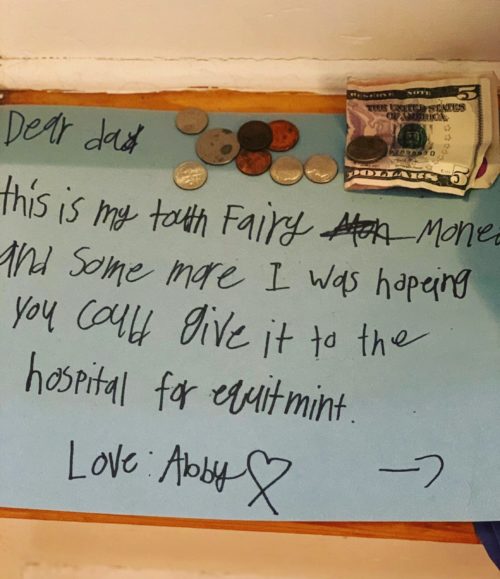 RESERVE NOTE
5
THE UNITED STATES
OF AMERICA
DOLLARS
5
Dear dad
this is my tooth Fairy Mon Mone
and some more I was hopeing
you could give it to the
hospital for equitmint.
Love: Abby